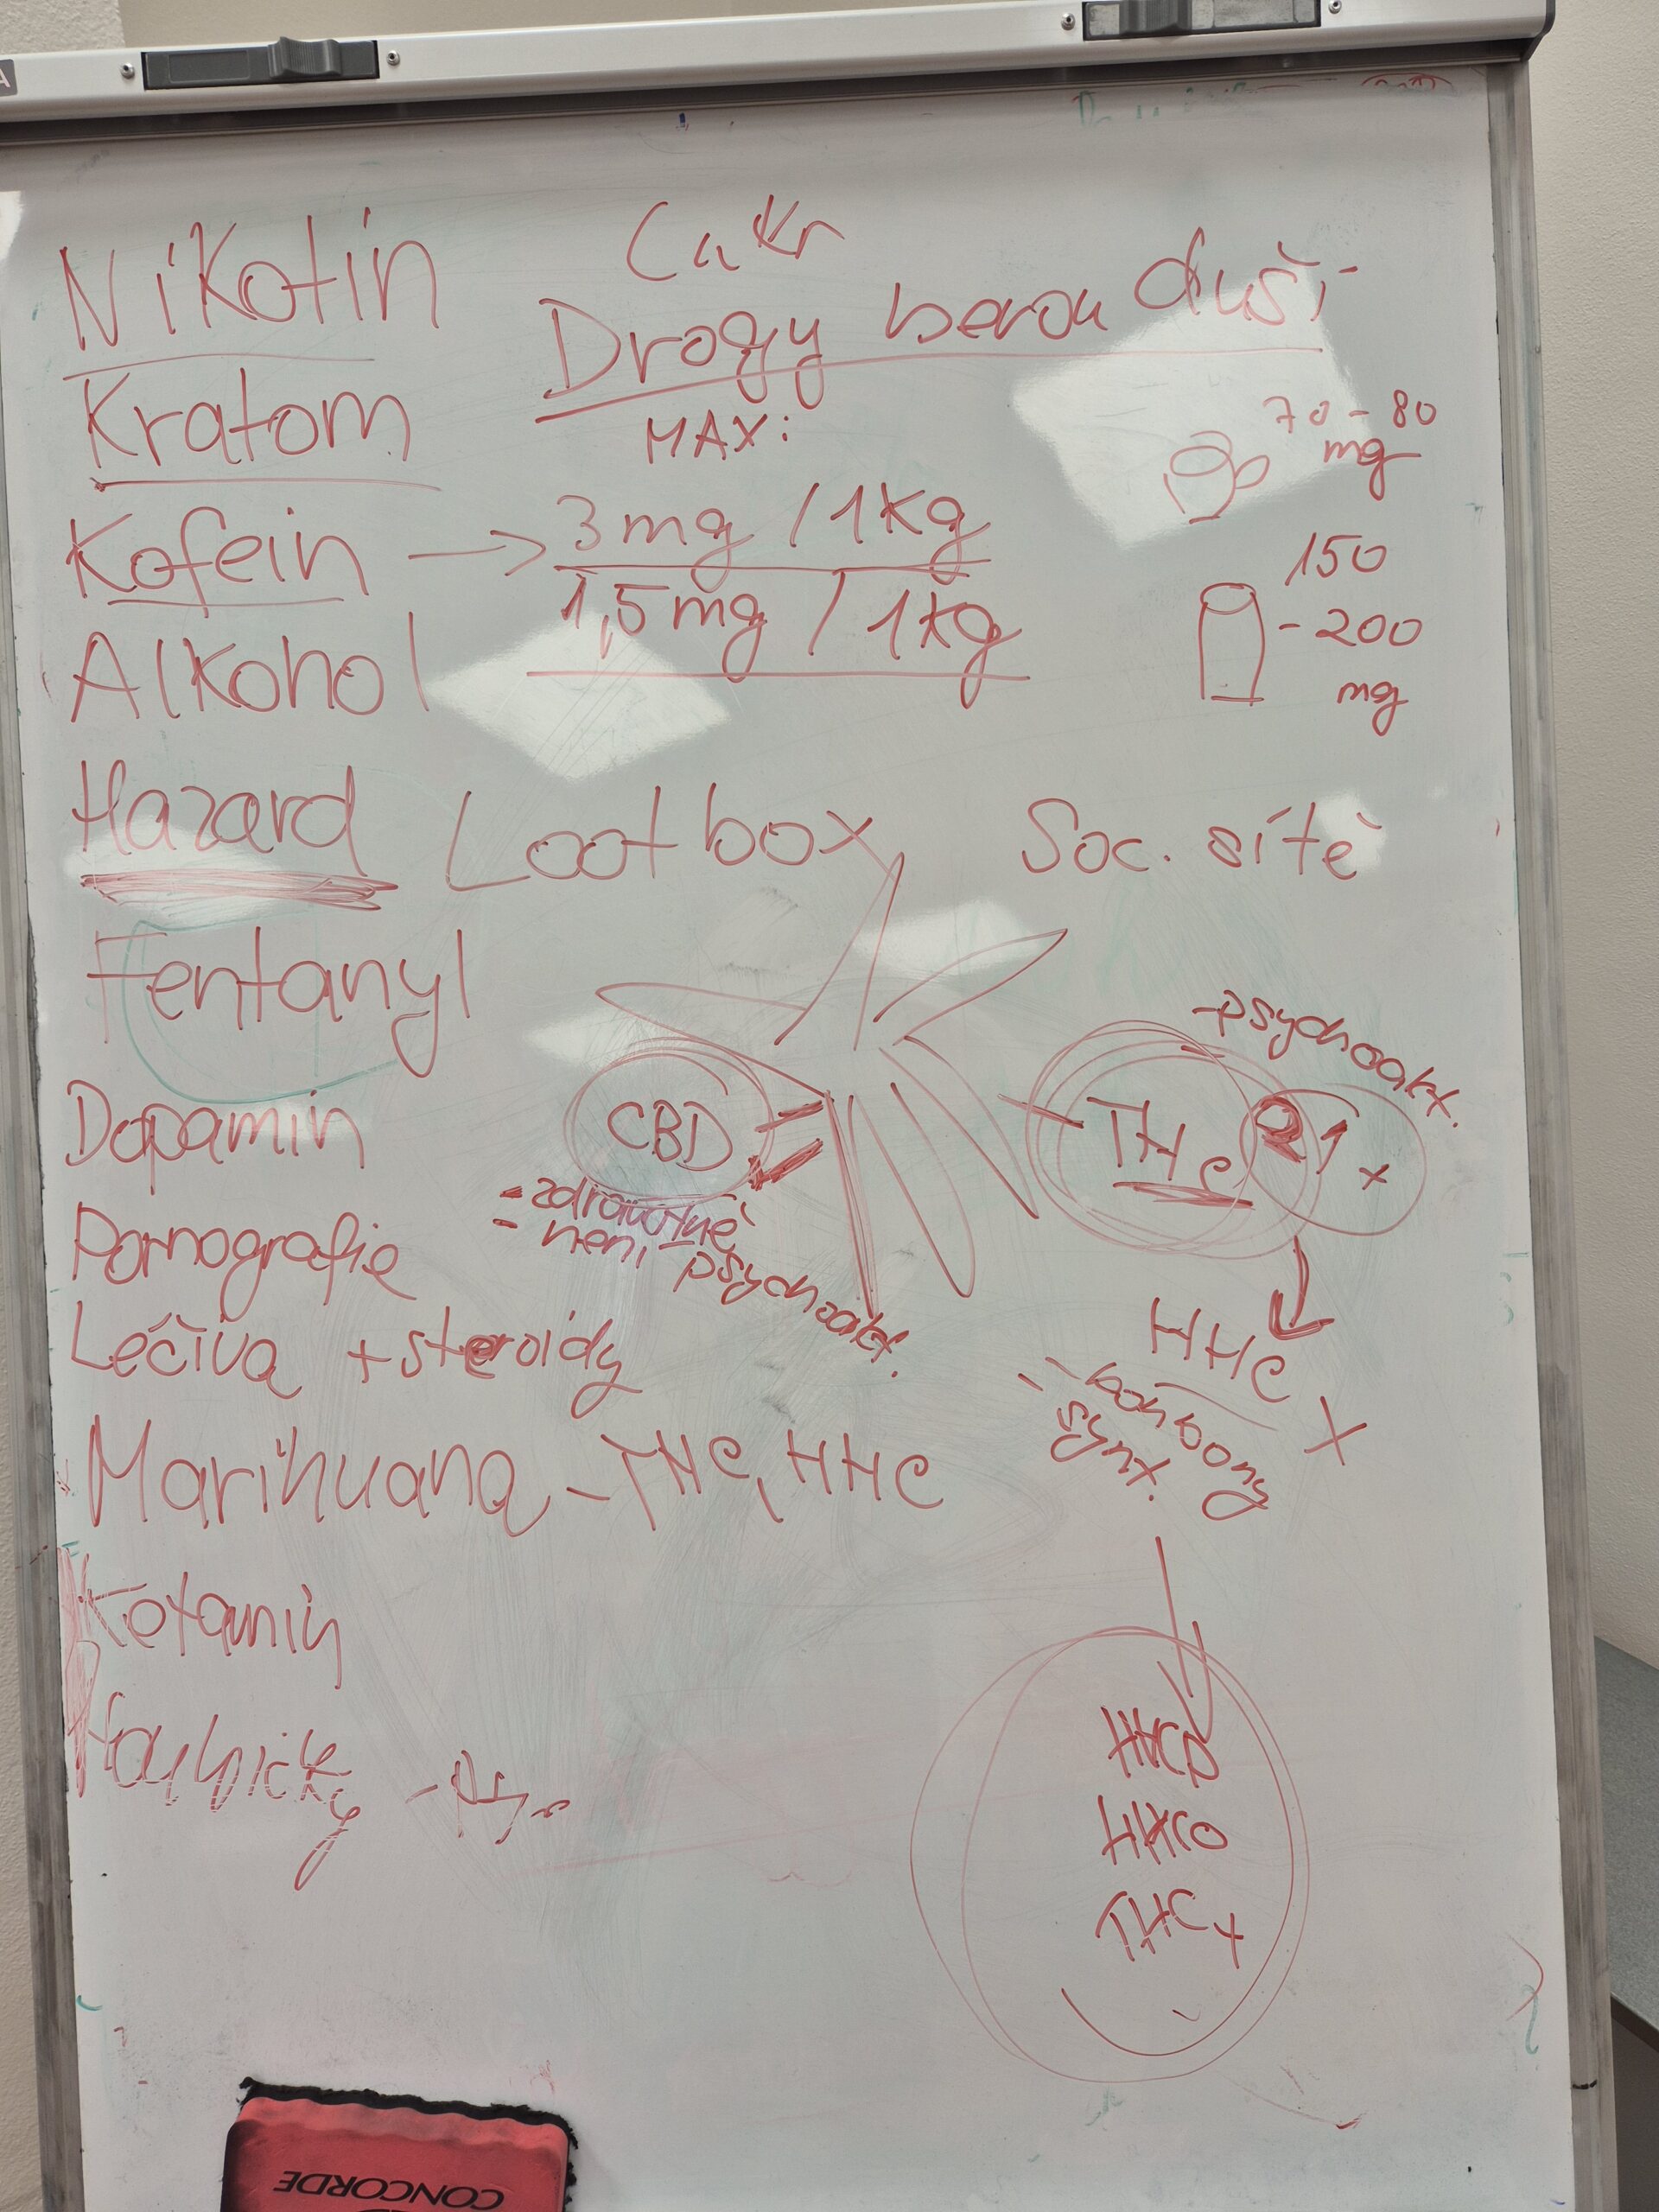 Nikotin
Cukr
Drogy berou duši
Kratom
MAX:
70-80
mg
Kofein → 3mg / 1kg
1,5mg / 1kg
150
-200
mg
Alkohol
Hazard Lootbox Soc. sítě
Fentanyl
-psychoakt.
Dopamin
CBD
THC
1x
- zdravotně
- není psychoakt.
Pornografie
Léčiva + steroidy
HHC X
- bonbony
- synt.
Marihuana - THC, HHC
Ketamin
HHCP
HHCO
THCx
CONCORDE